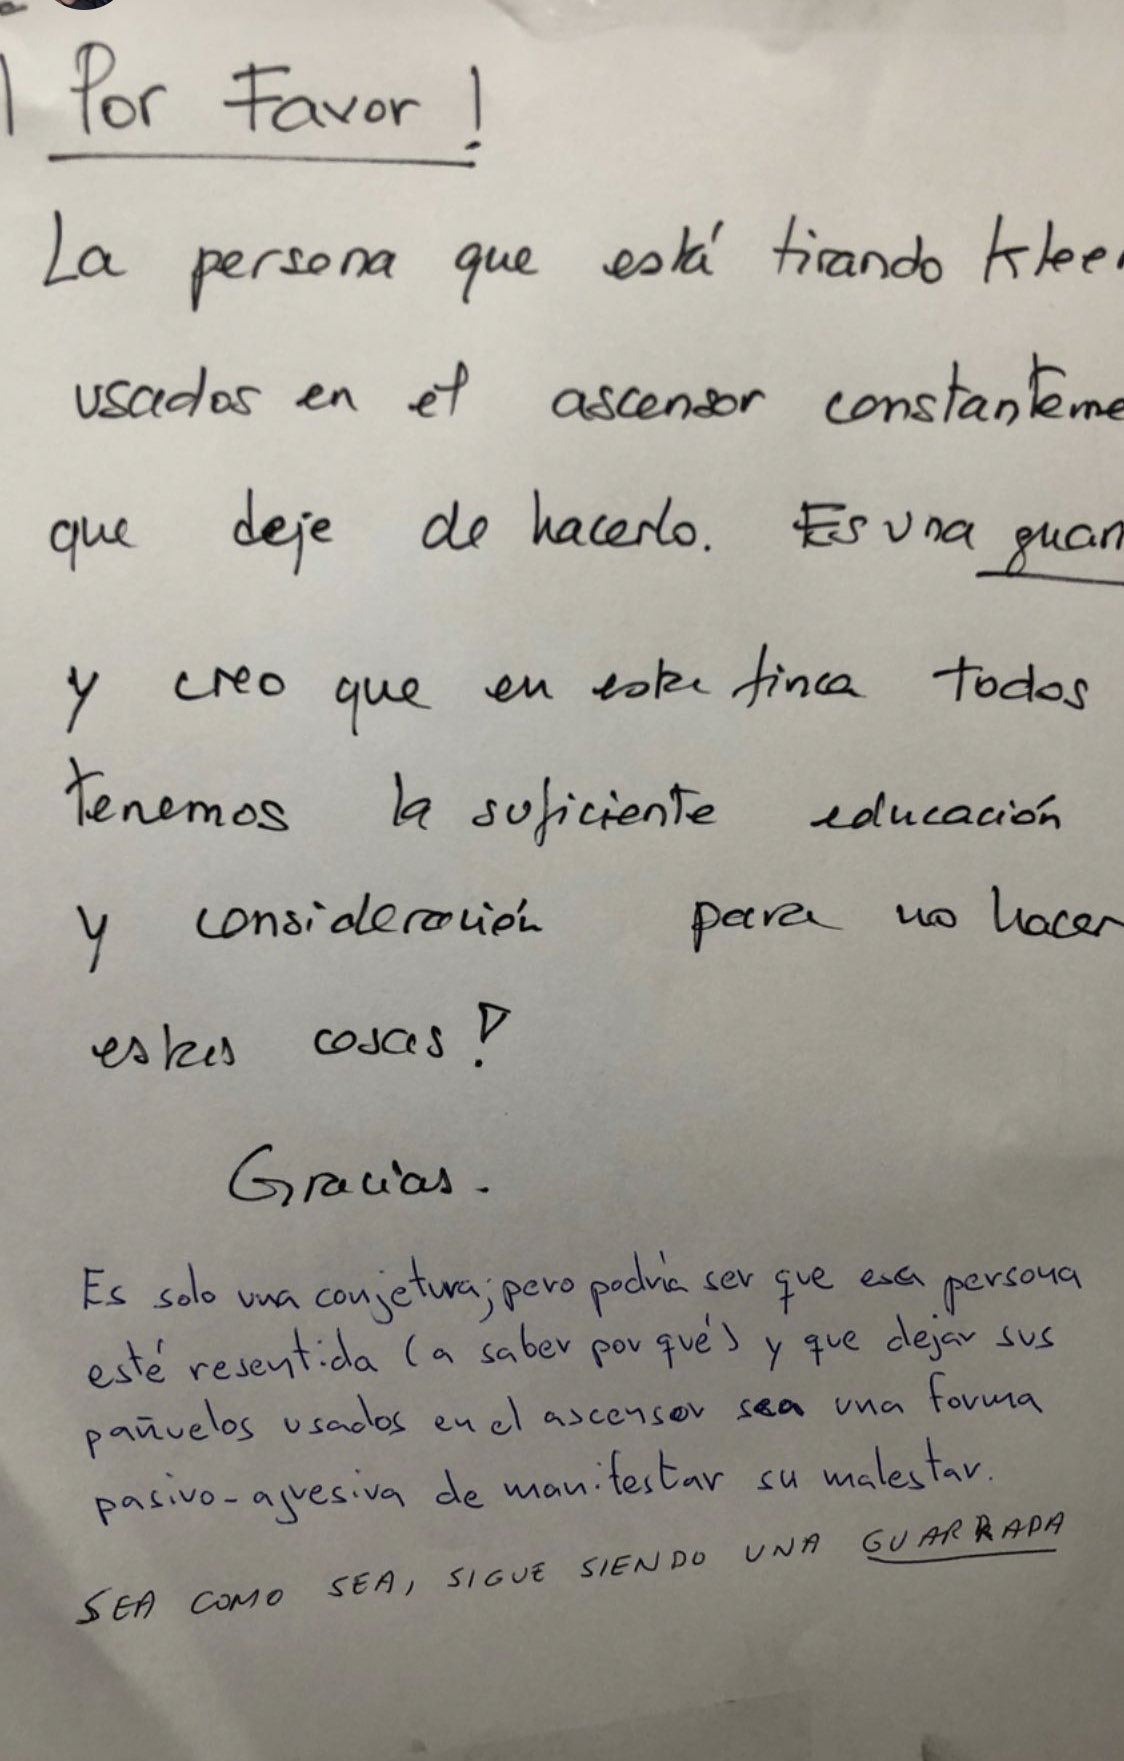 ¡Por Favor!
La persona que está tirando klee
usados en el ascensor constanteme
que deje de hacerlo. Es una guar
y creo que en esta finca todos
tenemos la suficiente educación
y consideración para no hacer
estas cosas!
Gracias.
Es solo una conjetura; pero podría ser que esa persona
esté resentida (a saber por qué) y que dejar sus
pañuelos usados en el ascensor sea una forma
pasivo-agresiva de manifestar su malestar.
SEA COMO SEA, SIGUE SIENDO UNA GUARRADA